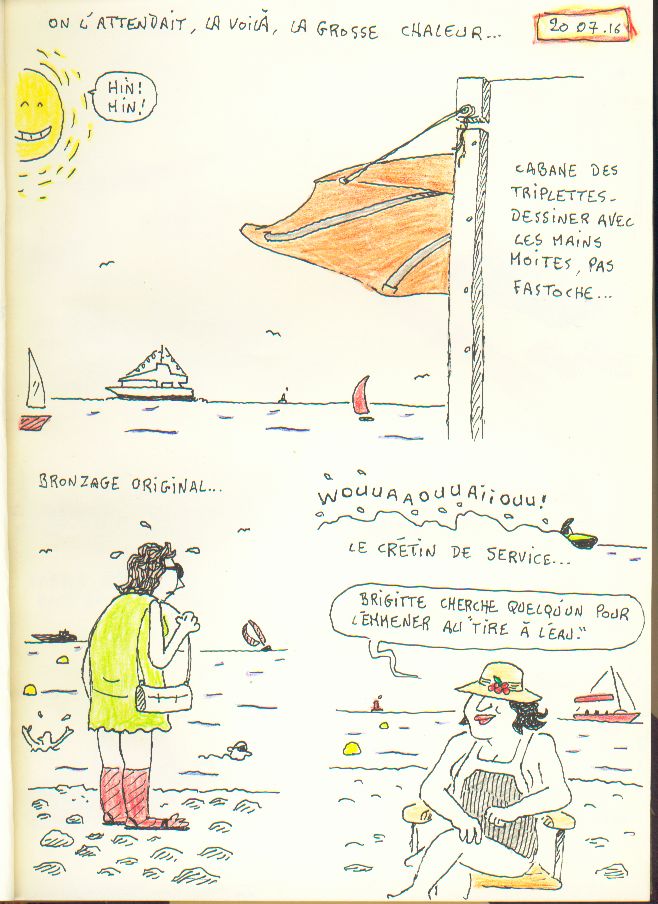 ON L'ATTENDAIT, LA VOILÀ, LA GROSSE CHALEUR...
20 07.16
HIN!
HIN!
CABANE DES
TRIPLETTES-
DESSINER AVEC
LES MAINS
MOITES, PAS
FASTOCHE...
BRONZAGE ORIGINAL...
WOUUAAOUUAIIOUU!
LE CRÉTIN DE SERVICE...
BRIGITTE CHERCHE QUELQU'UN POUR
L'EMMENER AU "TIRE À L'EAU."